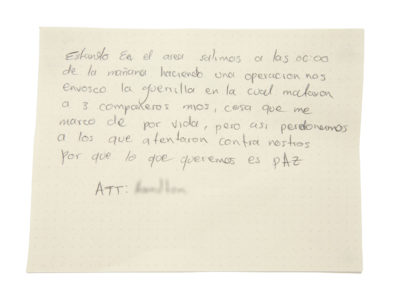 Estando En el area salimos a las 06:00
de la mañana haciendo una operacion nos
envosco la guerilla en la cual mataron
a 3 compañeros mios, cosa que me
marco de por vida, pero asi perdonemos
a los que atentaron contra nostros
por que lo que queremos es pAZ
ATT: